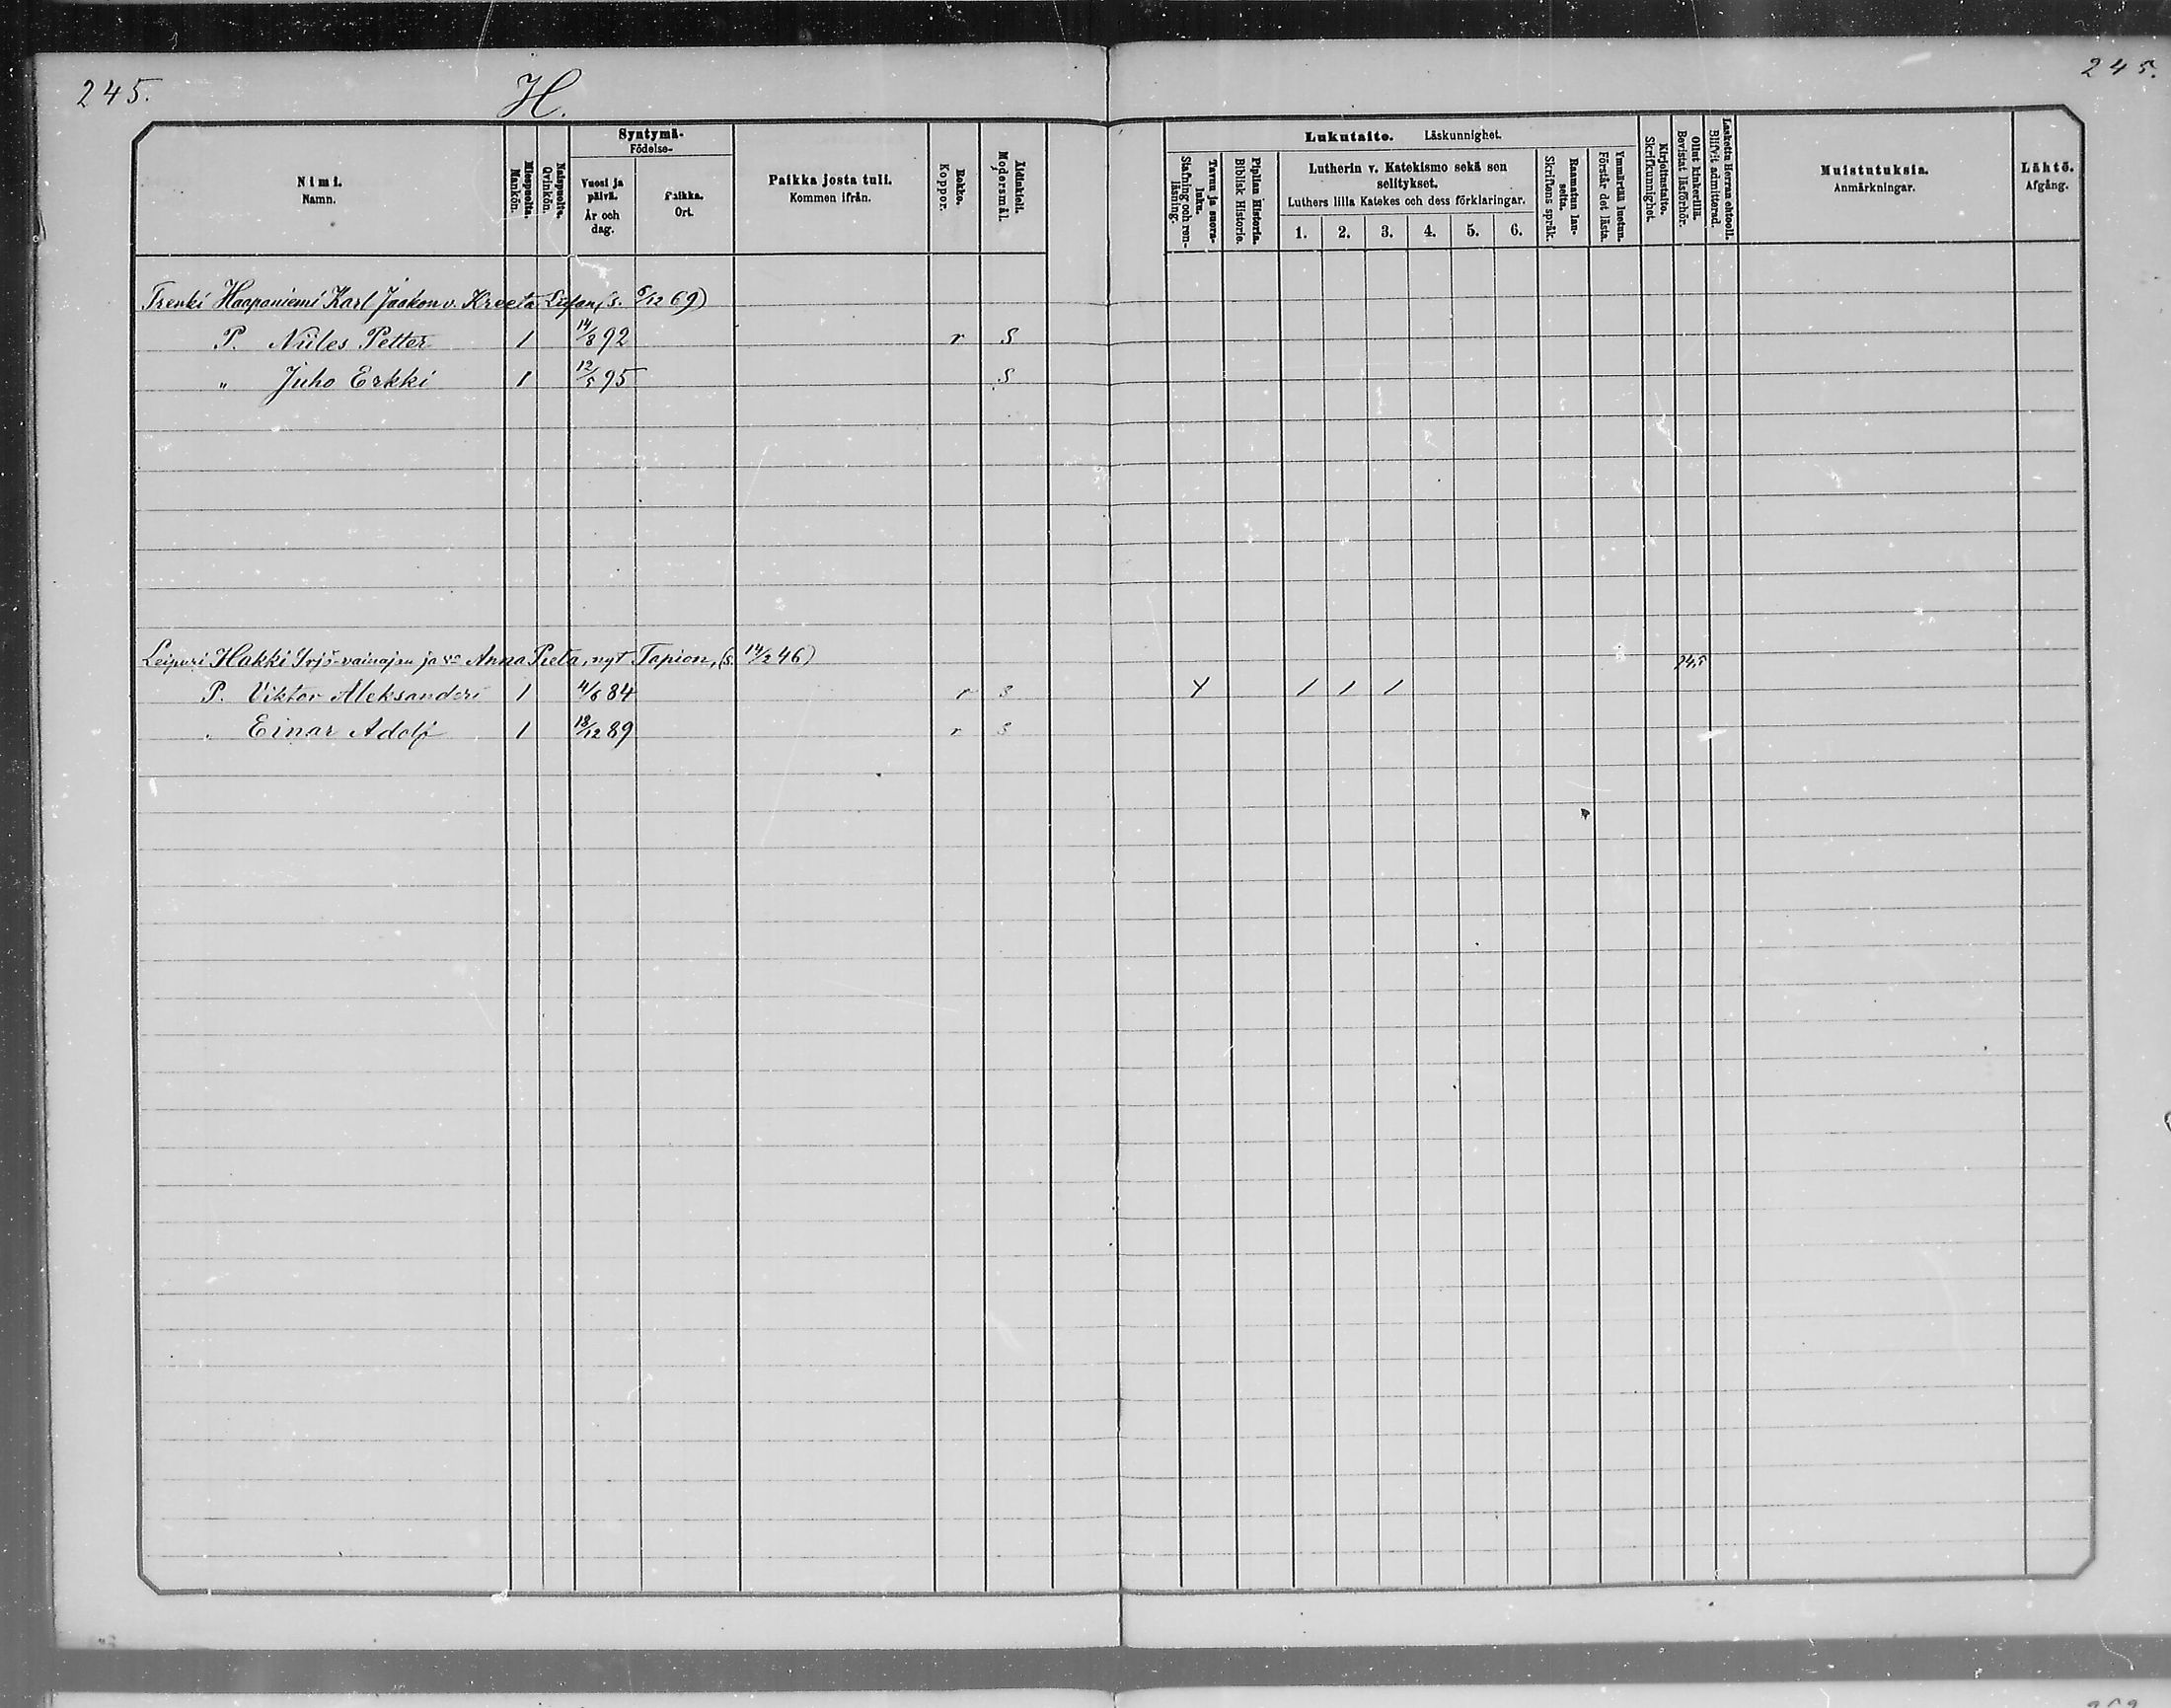 245.
H.
245.
Nimi.
Namn.
Miespuolta.
Mankön.
Naispuolta.
Qvinkön.
Syntymä-
Födelse-
Vuosi ja
päivä.
År och
dag.
Paikka.
Ort.
Paikka josta tuli.
Kommen ifrån.
Rokko.
Koppor.
Äidinkieli.
Modersmål.
Lukutaito. Läskunnighet.
Tavuu ja suora-
luku.
Stafning och ren-
läsning.
Piplian Historia.
Biblisk Historie.
Lutherin v. Katekismo sekä sen
selitykset.
Luthers lilla Katekes och dess förklaringar.
1. 2. 3. 4. 5. 6.
Raamatun lau-
seita.
Skriftens språk.
Ymmärtää luetun.
Förstår det lästa.
Kirjoitustaito.
Skrifkunnighet.
Ollut kinkerillä.
Bevistat läsförhör.
Laskettu Herran ehtooll.
Blifvit admitterad.
Muistutuksia.
Anmärkningar.
Lähtö.
Afgång.
Trenki Haapaniemi Karl Jaakon v. Kreeta (s. 6/12 69)
P. Niiles Petter 1 14/8 92 r s
" Juho Erkki 1 12/5 95 s
Leipuri Hakki Yrjö-vainajan ja va Anna Preta, nyt Tapion, (s. 14/2 46) 94,5
P. Viktor Aleksanderi 1 4/6 84 r s Y / / /
" Einar Adolf 1 18/12 89 r s